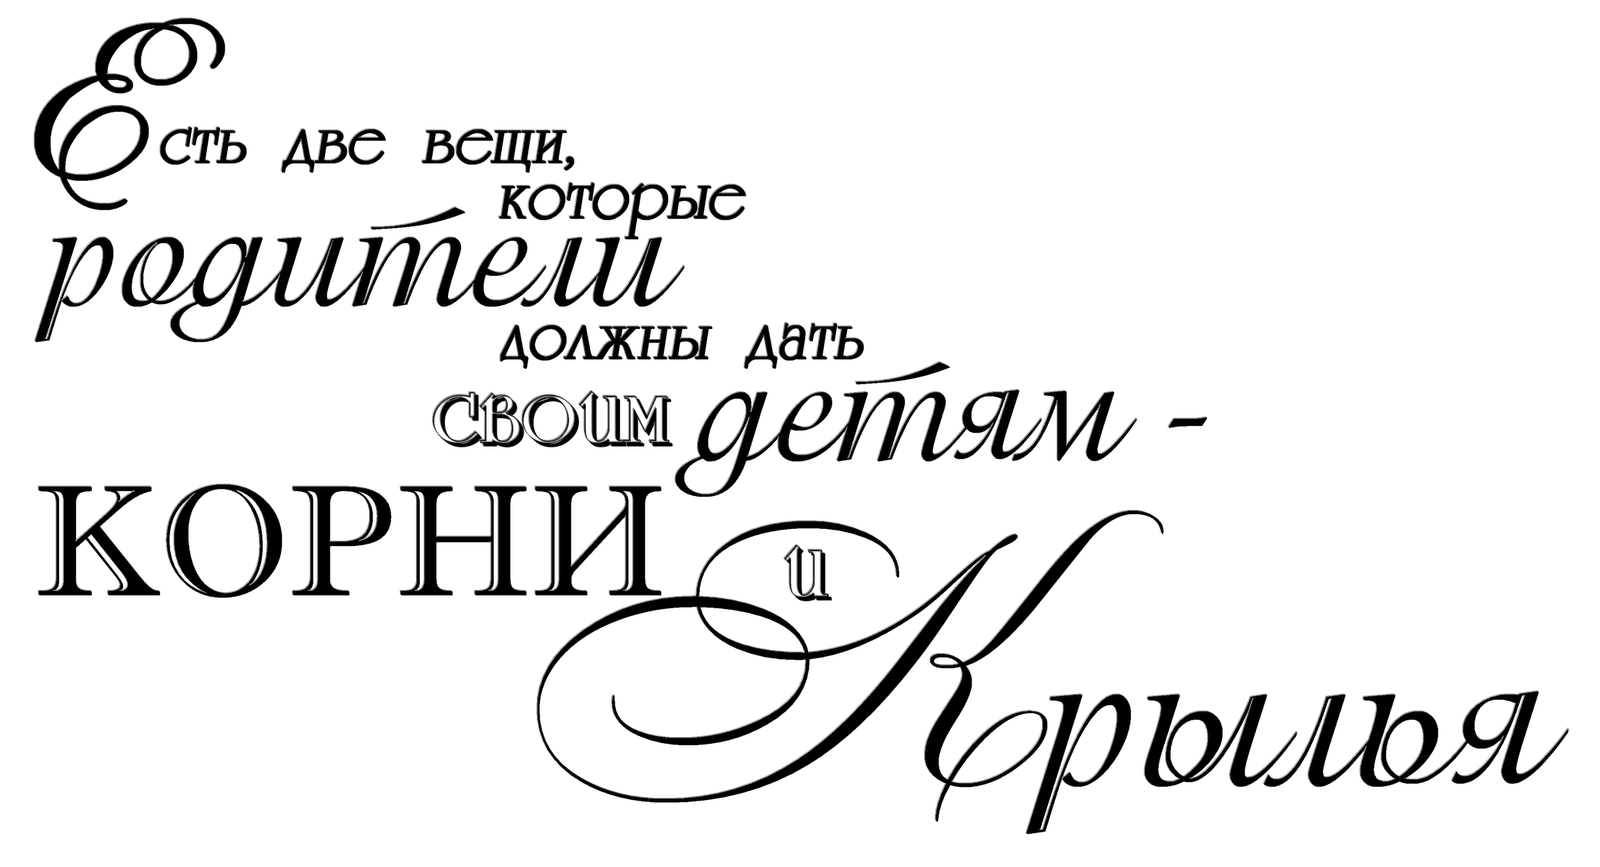 Есть две вещи,
которые
родители
должны дать
своим детям -
КОРНИ и
Крылья